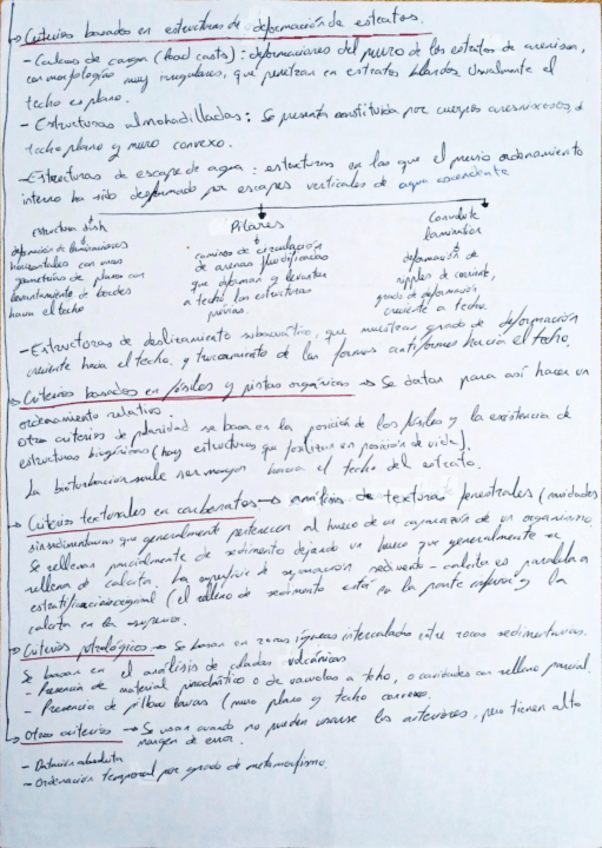 → Criterios basados en estructuras de deformación de estratos.
- Calcos de carga (load casts): deformaciones del muro de los estratos de arenisca,
con morfologías muy irregulares, que penetran en estratos blandos. Usualmente el
techo es plano.
- Estructuras almohadilladas: Se presenta constituida por cuerpos areniscosos, de
techo plano y muro convexo.
- Estructuras de escape de agua: estructuras en las que el previo ordenamiento
interno ha sido deformado por escapes verticales de agua ascendente
estructura dish
deformación de laminaciones
horizontales con unas
geometrías de planos con
levantamiento de bordes
hacia el techo
Pilares
caminos de circulación
de arenas fluidificadas
que deforman y levantan
a techo las estructuras
previas.
Convolute
lamination
deformación de
ripples de corriente,
grado de deformación
creciente a techo.
- Estructuras de deslizamiento subacuático, que muestran grado de deformación
creciente hacia el techo y truncamiento de las formas antiformes hacia el techo.
→ Criterios basados en fósiles y pistas orgánicas → Se datan para así hacer un
ordenamiento relativo.
Otro criterios de polaridad se basa en la posición de los fósiles y la existencia de
estructuras biogénicas (hay estructuras que fosilizan en posición de vida).
La bioturbación suele ser mayor hacia el techo del estrato.
→ Criterios texturales en carbonatos → análisis de texturas fenestrales (cavidades
sinsedimentarias que generalmente pertenecen al hueco de un caparazón de un organismo.
Se rellenan parcialmente de sedimento dejando un hueco que generalmente se
rellena de calcita. La superficie de separación sedimento - calcita es paralela a
estratificación original (el relleno de sedimento está en la parte inferior y la
calcita en la superior.
→ Criterios petrológicos → Se basan en zonas ígneas intercaladas entre rocas sedimentarias.
Se basan en el análisis de coladas volcánicas
- Presencia de material piroclástico o de vacuolas a techo, o cavidades con relleno parcial.
- Presencia de pillow lavas (muro plano y techo convexo.
→ Otros criterios → Se usan cuando no pueden usarse los anteriores, pero tienen alto
margen de error.
- Datación absoluta
- Ordenación temporal por grado de metamorfismo.